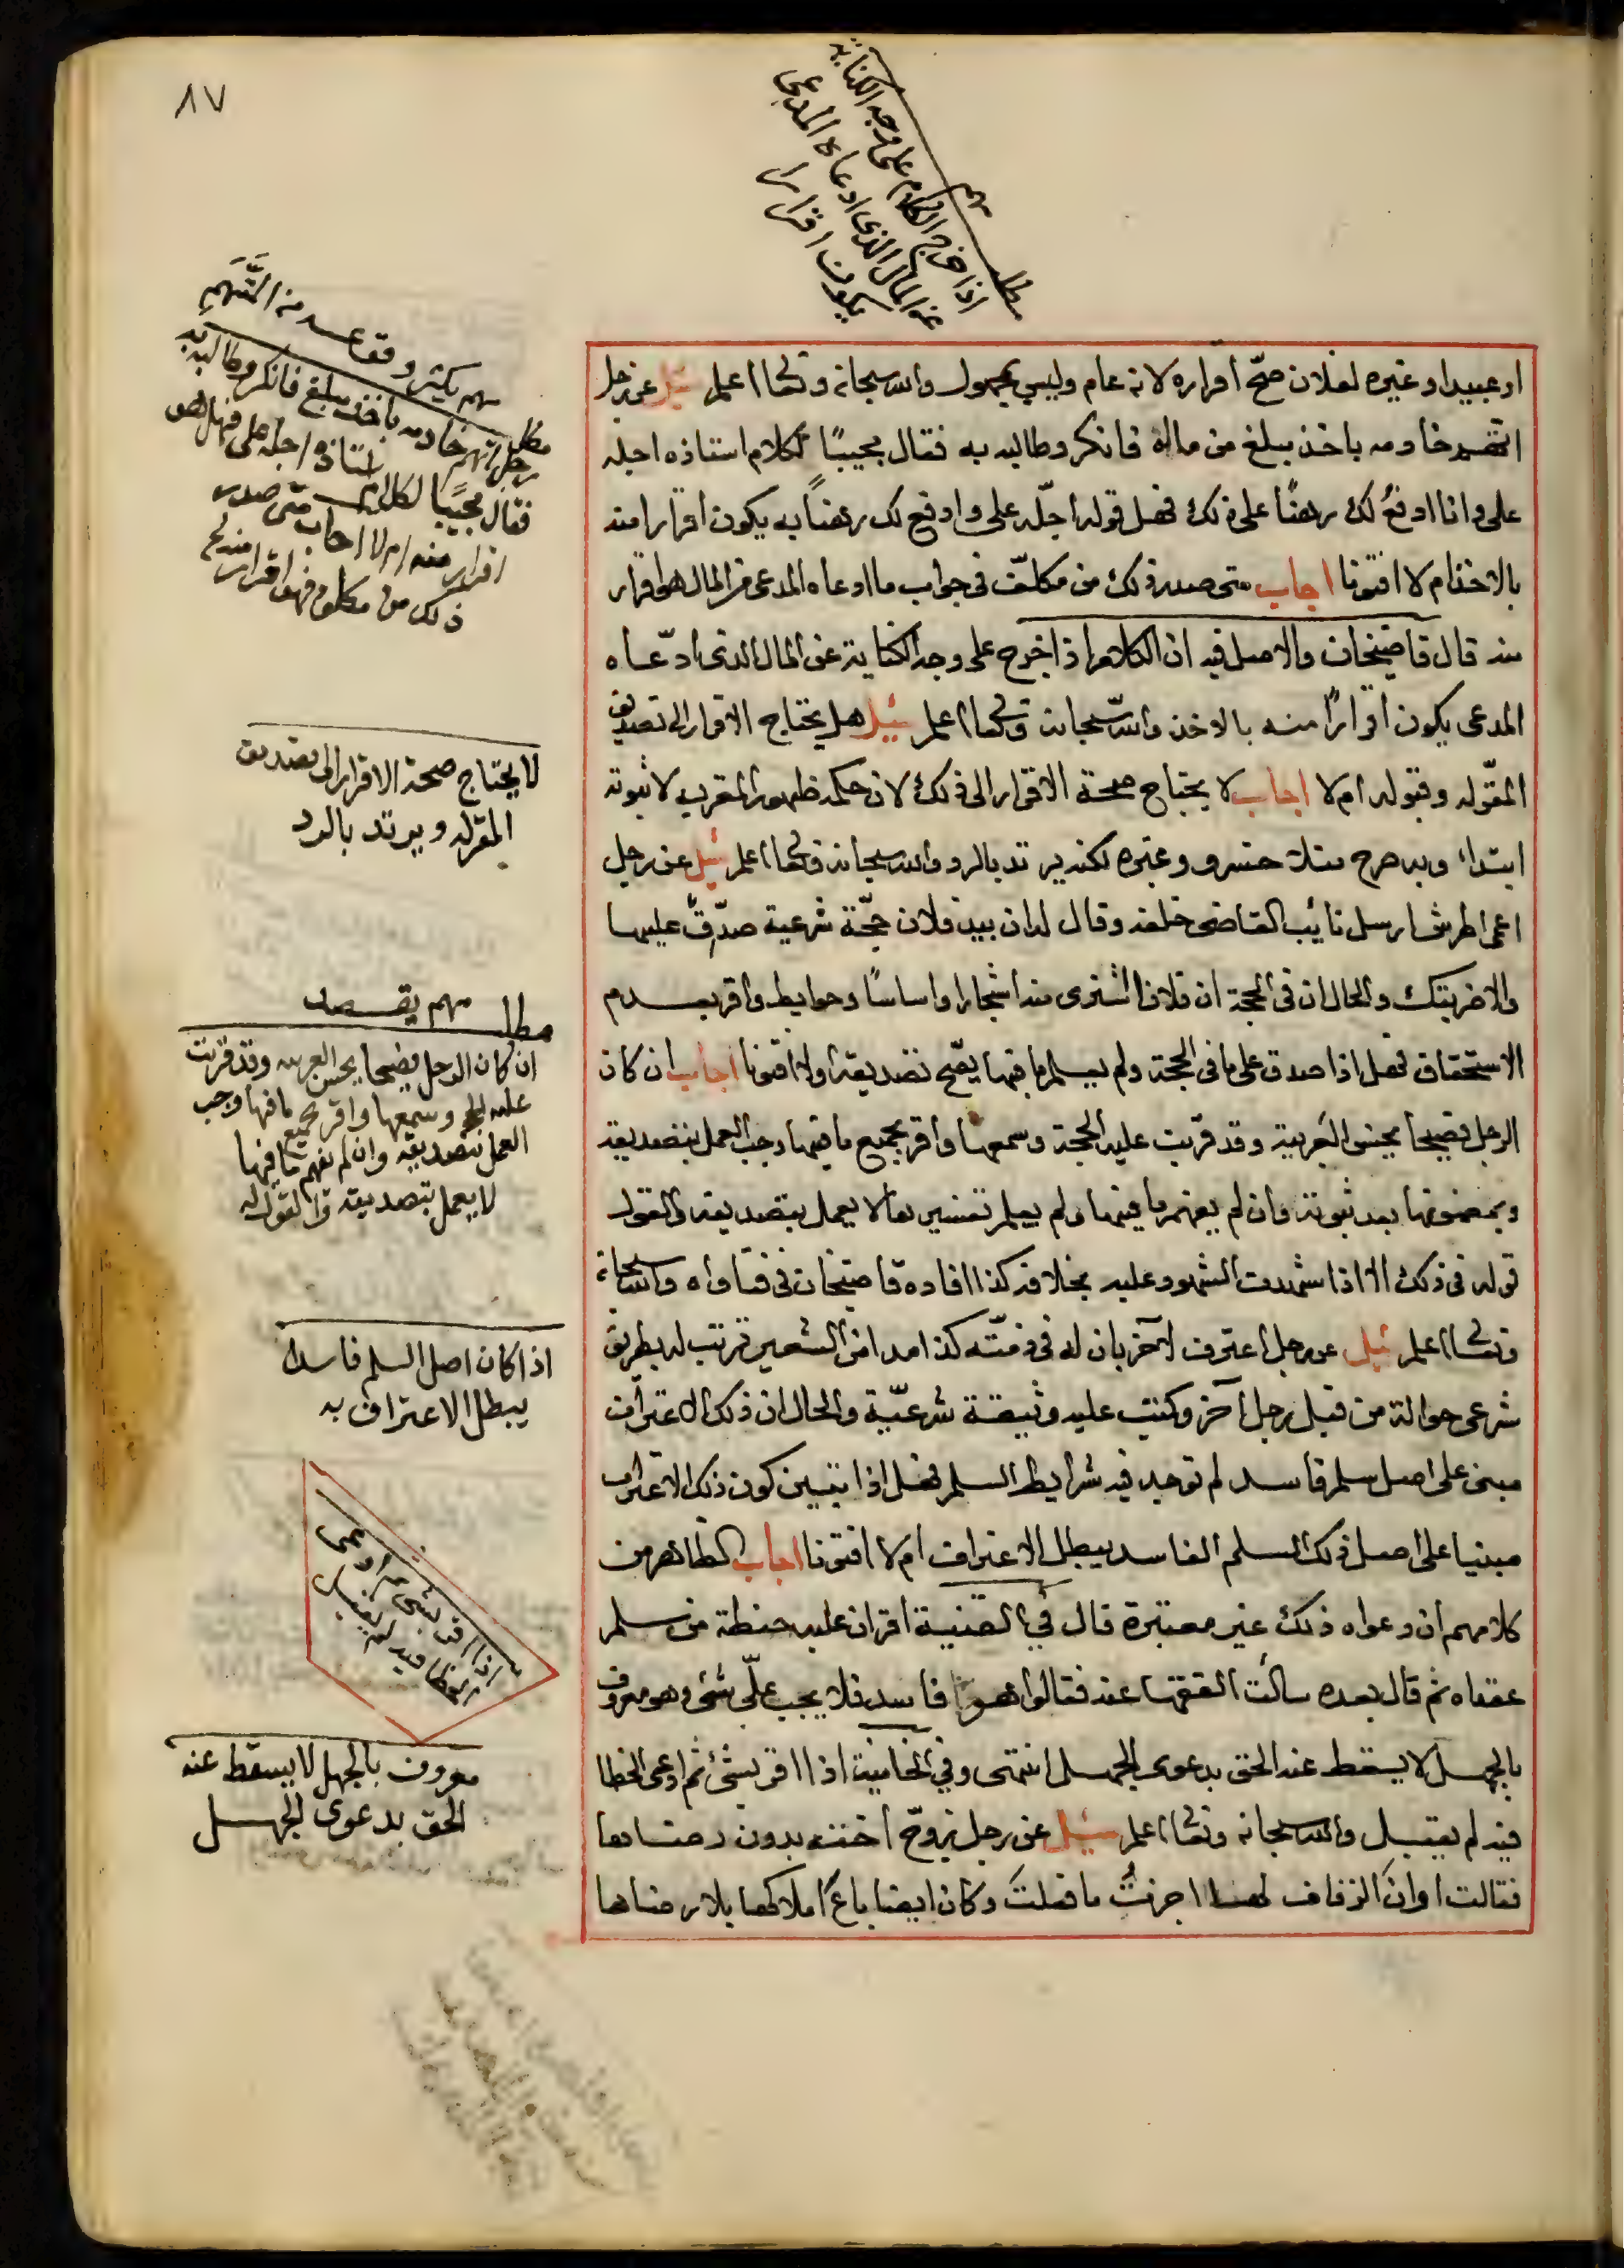 ٨٧
مهم
مطلب
اذا خرج الكلام على وجه الكناية
عن المال الذى ادعاه المدعى
يكون اقرارا
او عبيد او غيره لفلان صحّ اقراره لانه عام وليس بمجهول والله سبحانه وتعالى اعلم سئل عن رجل
اتهم خادمه باخذ مبلغ من ماله فانكر وطالبه به فقال مجيبًا لكلام استاذه اجله
على وانا ادفع لك رهنًا على ذلك فهل قوله اجلّه على وادفع لك رهنًا به يكون اقرارا منه
بالاخذ ام لا افتونا اجاب متى صدر ذلك من مكلّف فى جواب ما ادعاه المدعى من المال فهو اقرار
منه قال قاضيخان والاصل فيه ان الكلام اذا خرج على وجه الكناية عن المال الذى ادّعاه
المدعى يكون اقرارًا منه بالاخذ والله سبحانه وتعالى اعلم سئل هل يحتاج الاقرار الى تصديق
المقرّ له وقبوله ام لا اجاب لا يحتاج صحة الاقرار الى ذلك لان حكمه ظهور المقر به لا ثبوته
ابتداء وبه صرح منلا خسرو وغيره لكنه يرتد بالرد والله سبحانه وتعالى اعلم سئل عن رجل
اعمى اطرش ارسل نائب القاضى خلفه وقال له ان بيد فلان حجّة شرعية صدّق عليها
والا ضربتك والحال ان فى الحجة ان فلانا اشترى منه اشجارا واساسًا وحوايط واقر بعدم
الاستحقاق فهل اذا صدق على ما فى الحجة ولم يعلم ما فيها يصّح تصديقه اولا افتونا اجاب ان كان
الرجل فصيحا يحسن العربية وقد قرئت عليه الحجة وسمعها واقر بجميع ما فيها وجب العمل بتصديقه
وبمضمونها بعد ثبوته وان لم يفهم ما فيها ولم يعلم تفسيرها لا يعمل بتصديقه والقول
قوله فى ذلك الا اذا شهدت الشهود عليه بخلافه كذا افاده قاضيخان فى فتاواه والله سبحانه
وتعالى اعلم سئل عن رجل اعترف لآخر بان له فى ذمّته كذا مدا من الشعير ترتب له بطريق
شرعى حوالة من قبل رجل آخر وكتب عليه وثيقة شرعيّة والحال ان ذلك الاعتراف
مبنى على اصل سلم فاسد لم توجد فيه شرايط السلم فهل اذا تبين كون ذلك الاعتراف
مبنيا على اصل ذلك السلم الفاسد يبطل الاعتراف ام لا افتونا اجاب الظاهر من
كلامهم ان دعواه ذلك غير معتبرة قال فى القنية اقر ان عليه حنطة من سلم
عقداه ثم قال بعده سألت الفقها عنه فقالوا هو فاسد فلا يجب علّى شئ وهو معروف
بالجهل لا يسقط عنه الحق بدعوى الجهل انتهى وفي الخانية اذا اقر بشئ ثم ادعى الخطا
فيه لم يقبل والله سبحانه وتعالى اعلم سئل عن رجل زوّج اخته بدون رضاها
فقالت اوان الزفاف لها اجزتُ ما فعلتَ وكان ايضا باع املاكها بلا رضاها
مهم يكثر وقوعه من المتّهم
مطلب
رجل اتهم خادمه باخذ مبلغ فانكر وطالبه به
فقال مجيبًا لكلام استاذه اجله على فهل هو
اقرار منه ام لا اجاب متى صدر
ذلك من مكلف فهو اقرار منه
لا يحتاج صحة الاقرار الى تصديق
المقرله ويرتد بالرد
مطلب مهم يقصد
ان كان الرجل فصيحا يحسن العربيه وقد قرئت
عليه الحجة وسمعها واقر بجميع ما فيها وجب
العمل بتصديقه وان لم يفهم ما فيها
لا يعمل بتصديقه والقول له
اذا كان اصل السلم فاسدا
يبطل الاعتراف به
اذا اقر بشئ ثم ادعى
الخطا فيه لم يقبل
معروف بالجهل لا يسقط عنه
الحق بدعوى الجهل